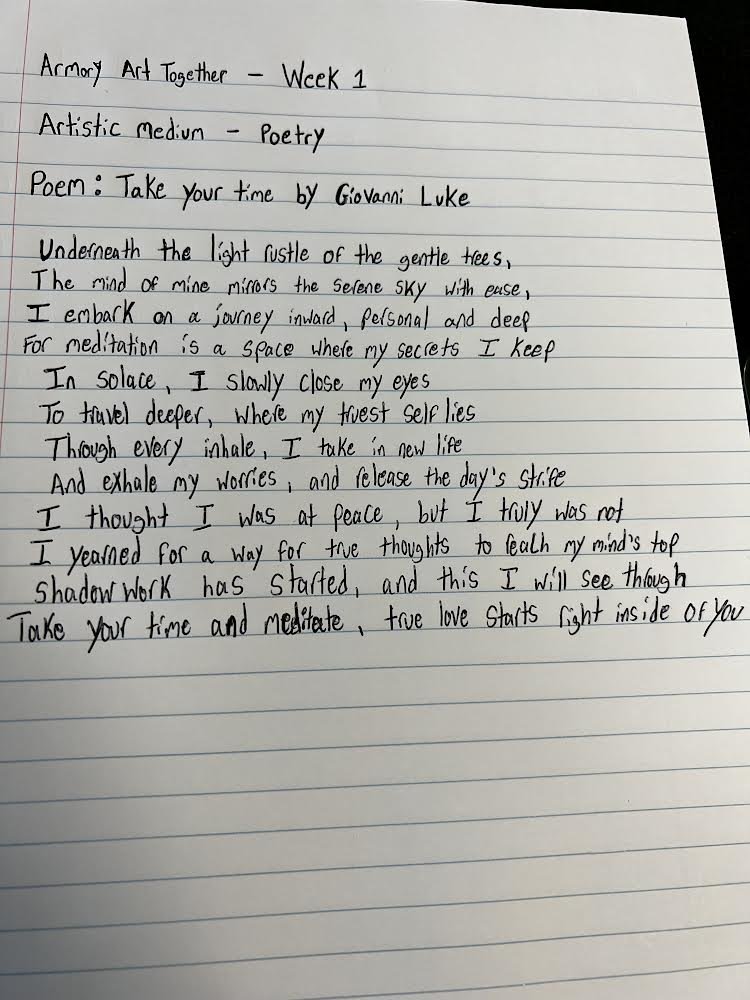 Armory Art Together - Week 1
Artistic medium - Poetry
Poem: Take your time by Giovanni Luke
Underneath the light rustle of the gentle trees,
The mind of mine mirrors the serene sky with ease,
I embark on a journey inward, personal and deep
For meditation is a space where my secrets I keep
In solace, I slowly close my eyes
To travel deeper, where my truest self lies
Through every inhale, I take in new life
And exhale my worries, and release the day's strife
I thought I was at peace, but I truly was not
I yearned for a way for true thoughts to reach my mind's top
Shadow work has started, and this I will see through
Take your time and meditate, true love starts right inside of you